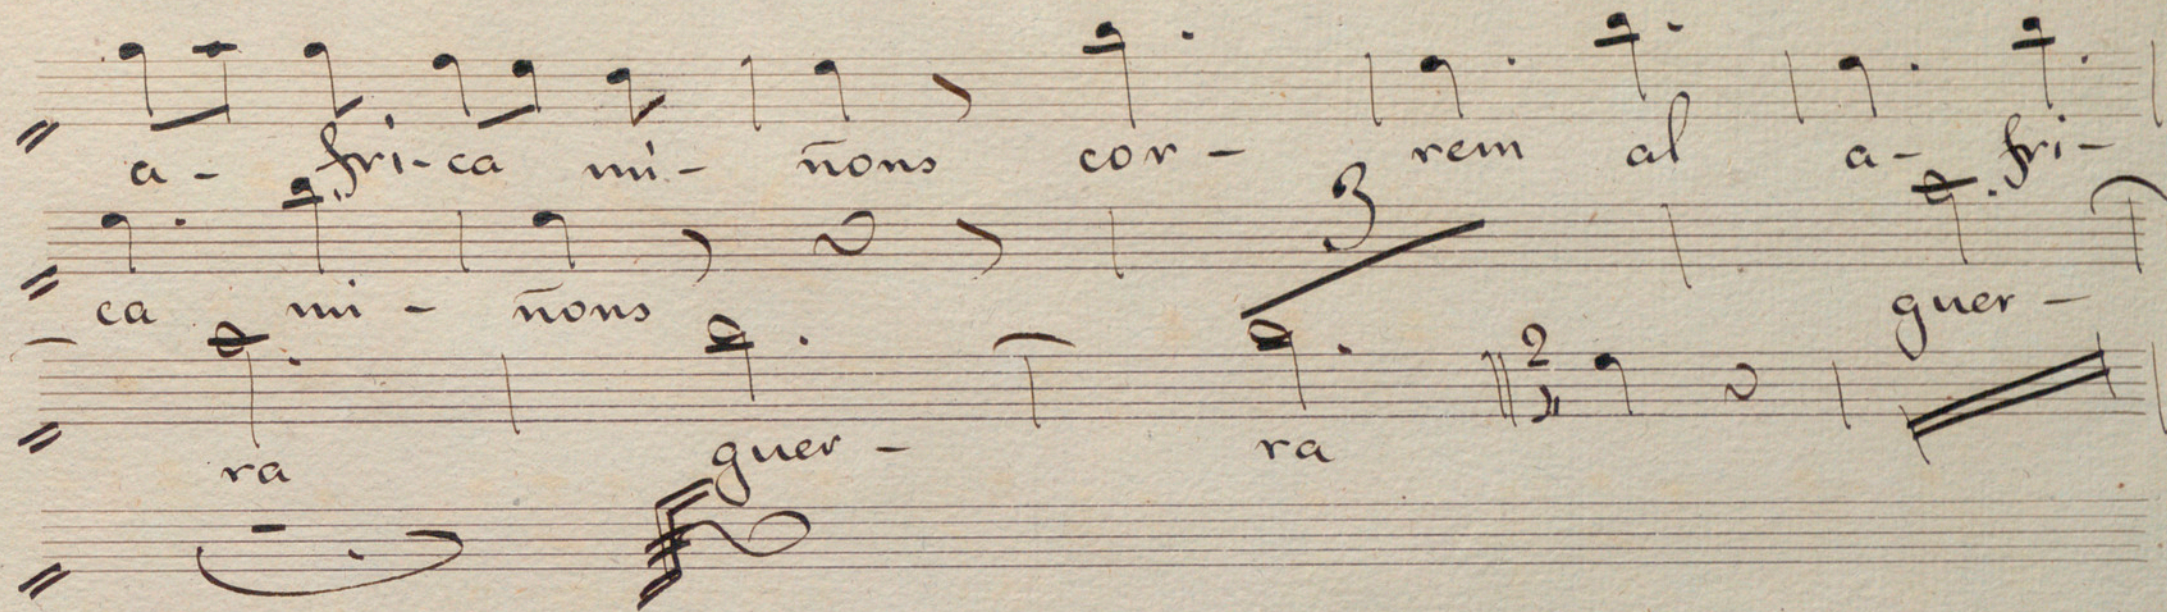 a - fri - ca mi - ñons cor - rem al a - fri -
ca mi - ñons 3 guer -
ra guer - ra 2